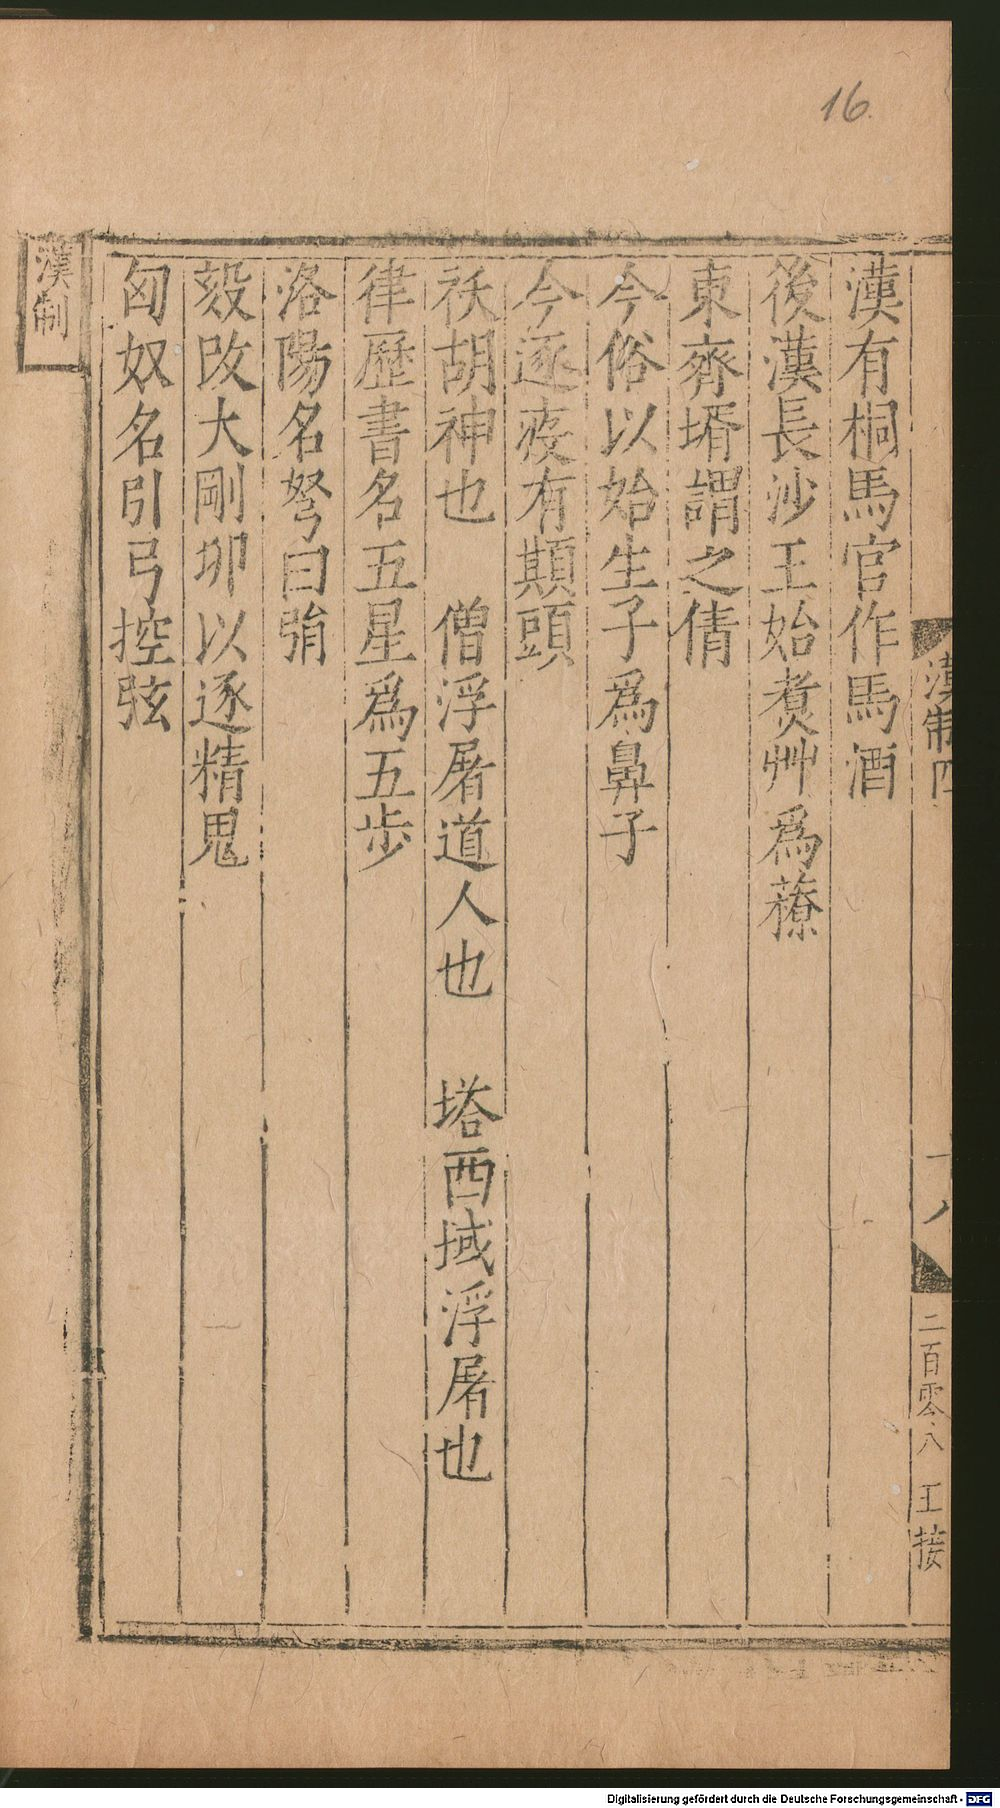 16.
漢制四
二百零八 王接
漢有桐馬官作馬酒
後漢長沙王始煑艸爲藔
東齊壻謂之倩
今俗以始生子爲鼻子
今逐疫有䫏頭
祅胡神也 僧浮屠道人也 塔西域浮屠也
律歷書名五星爲五步
洛陽名弩曰弰
毅改大剛卯以逐精鬼
匈奴名引弓控弦
漢制
Digitalisierung gefördert durch die Deutsche Forschungsgemeinschaft - DFG